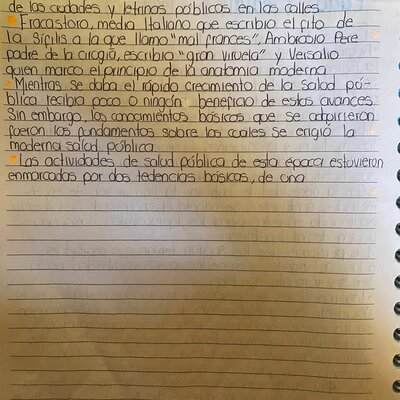 de las ciudades y letrinas públicos en las calles.
Fracastoro, médio Italiano que escribio el fito de
la Sífilis a la que llamo "mal frances", Ambrosio Pere
padre de la cirogía, escribio "gran viruela" y Versalio
quien marco el principio de la anatomia moderna
Mientras se daba el rápido crecimiento de la salod pó-
blica recibia poco o ningón beneficio de estos avances.
Sin embargo, los conocimientos básicos que se adqirieron
fueron los fundamentos sobre los cuales se erigió la
moderna salod pública.
Las actividades de salud pública de esta época estuvieron
enmarcadas por dos tedencias básicas, de una